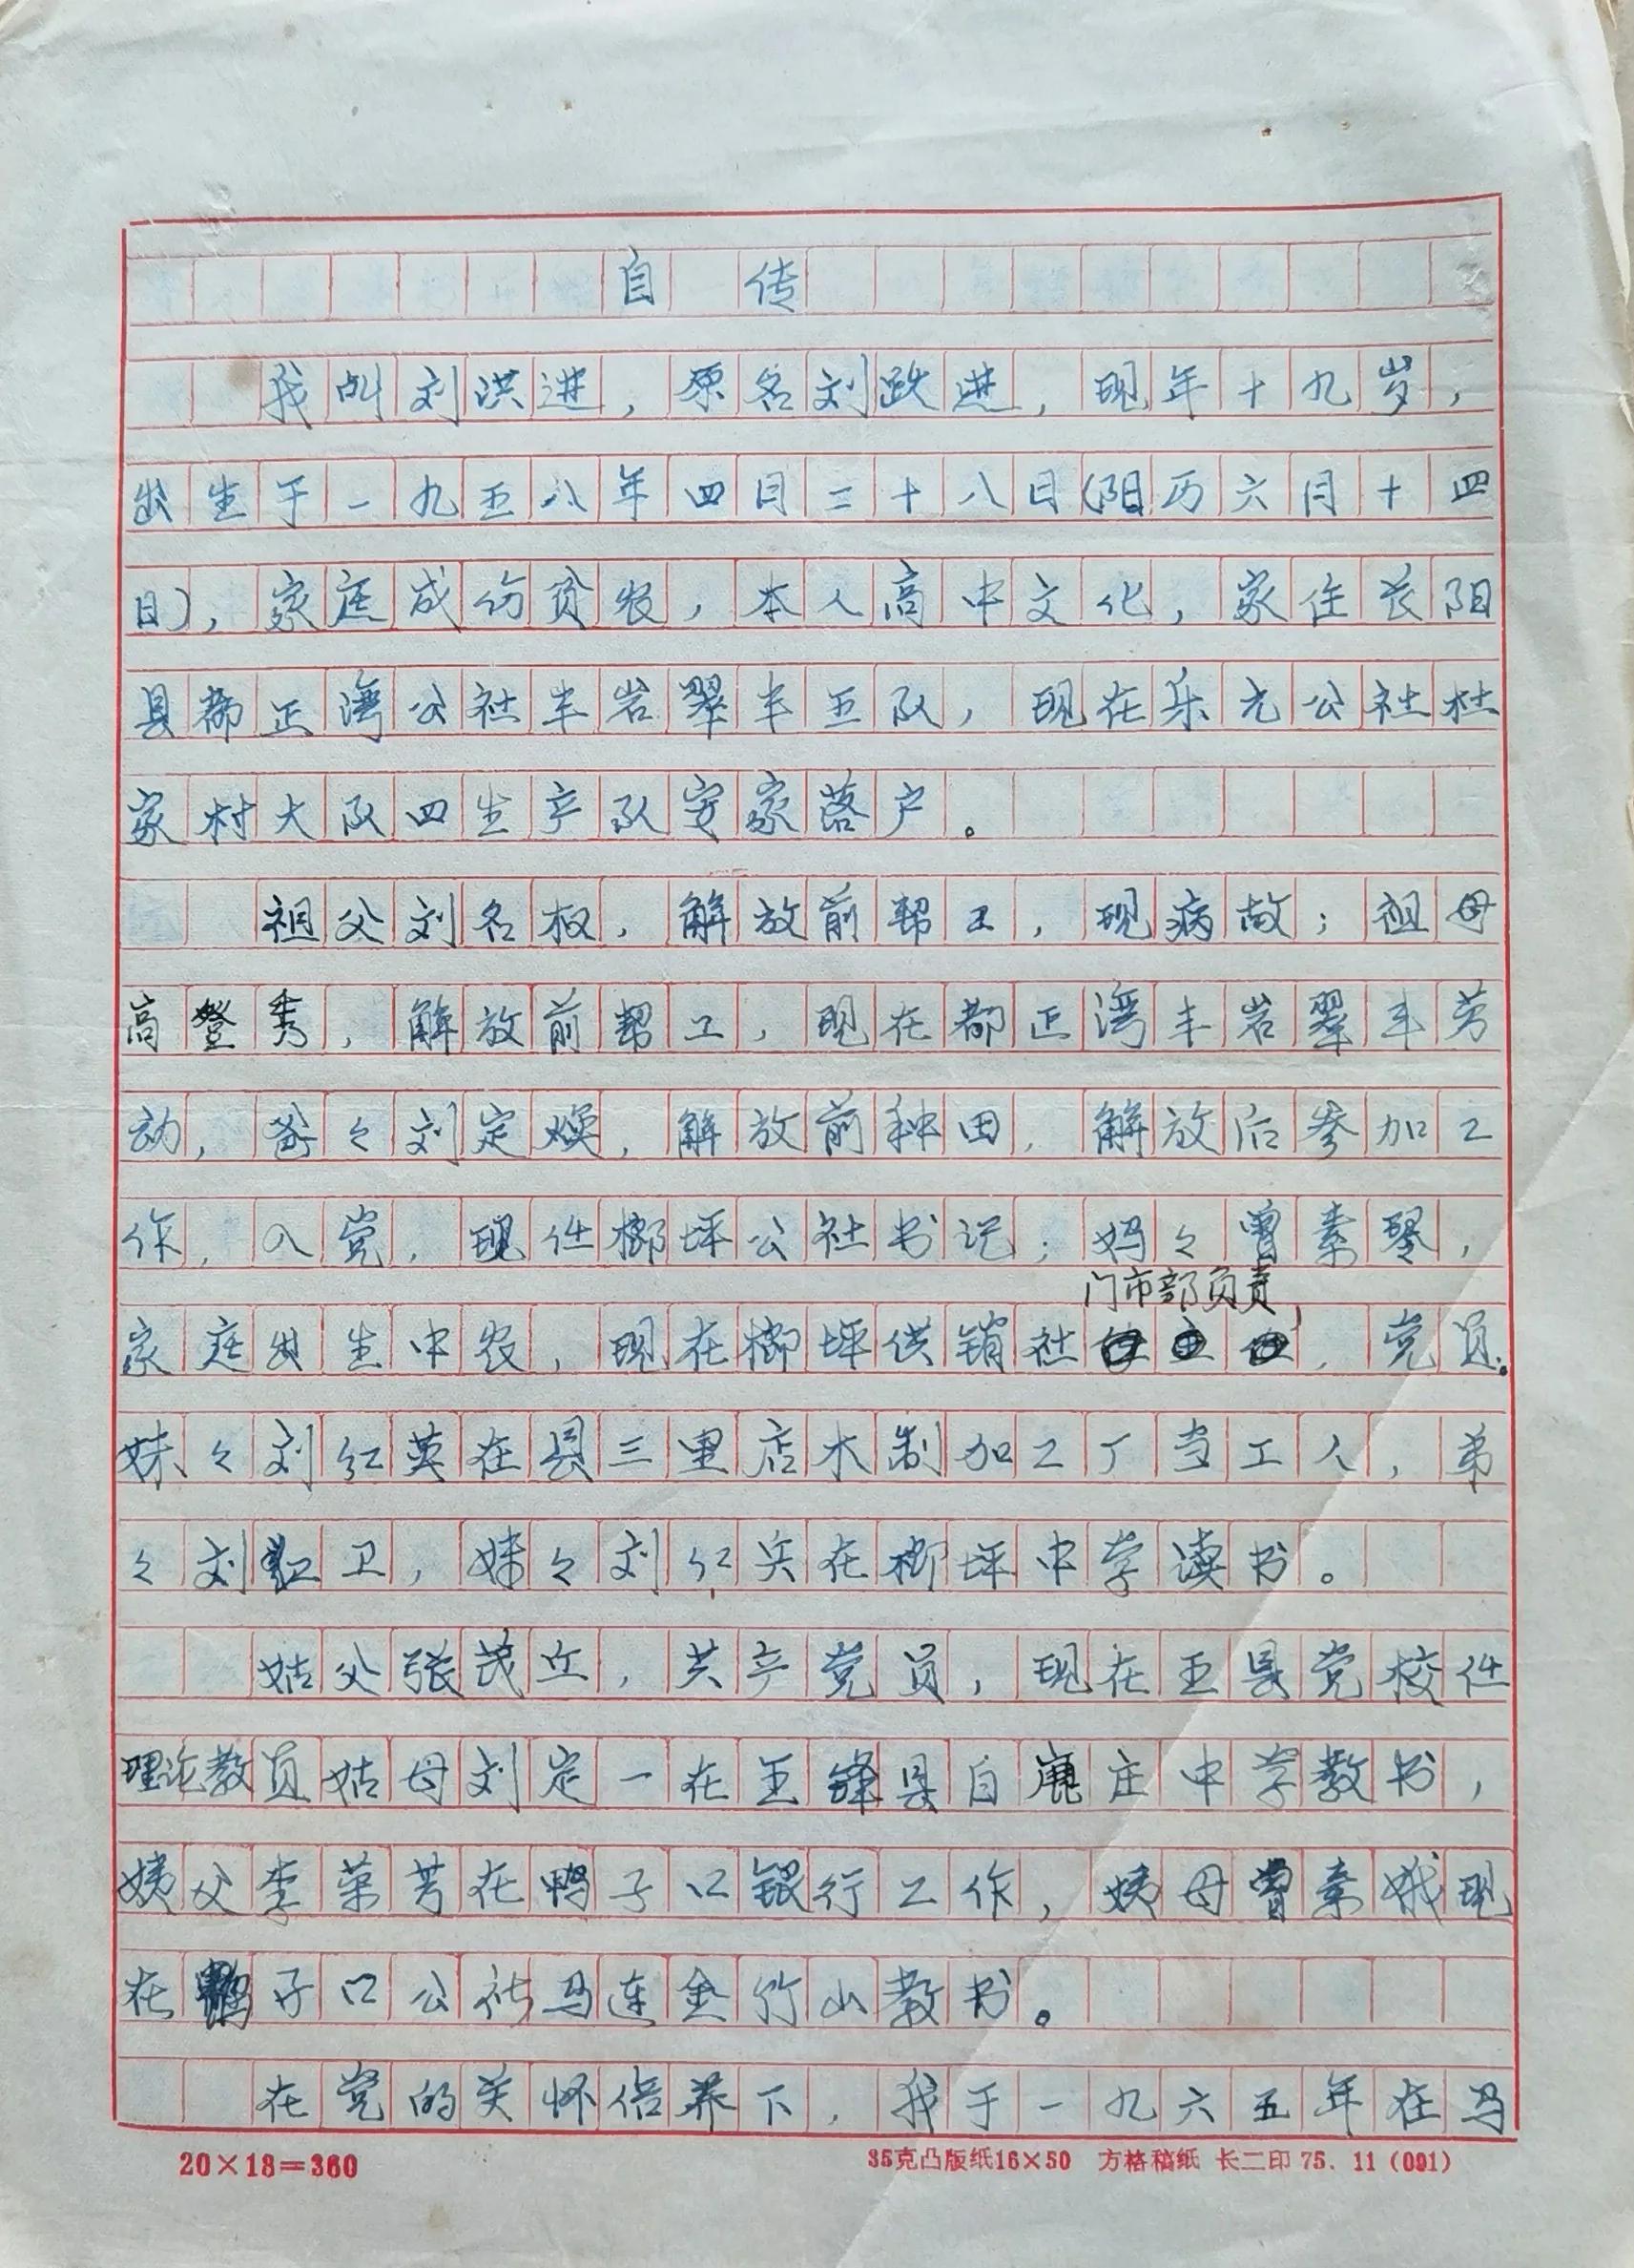 自传
我叫刘洪进，原名刘跃进，现年十九岁，
出生于一九五八年四月二十八日(阳历六月十四
日)，家庭成份贫农，本人高中文化，家住长阳
县都正湾公社丰岩翠丰五队，现在乐元公社杜
家村大队四生产队安家落户。
祖父刘名权，解放前帮工，现病故；祖母
高登秀，解放前帮工，现在都正湾丰岩翠丰劳
动，爸々刘定焕，解放前种田，解放后参加工
作，入党，现任榔坪公社书记；妈々曾素琴，
门市部负责，
家庭出生中农，现在榔坪供销社，党员。
妹々刘红英在县三里店木制加工厂当工人，弟
々刘红卫，妹々刘红兵在榔坪中学读书。
姑父张茂立，共产党员，现在五县党校任
理论教员姑母刘定一在五锋县白鹿庄中学教书，
姨父李荣芳在鸭子口银行工作，姨母曾素娥现
在鸭子口公社马连金竹山教书。
在党的关怀倍养下，我于一九六五年在马
20×18=360
35克凸版纸16×50 方格稿纸 长二印 75．11（091）